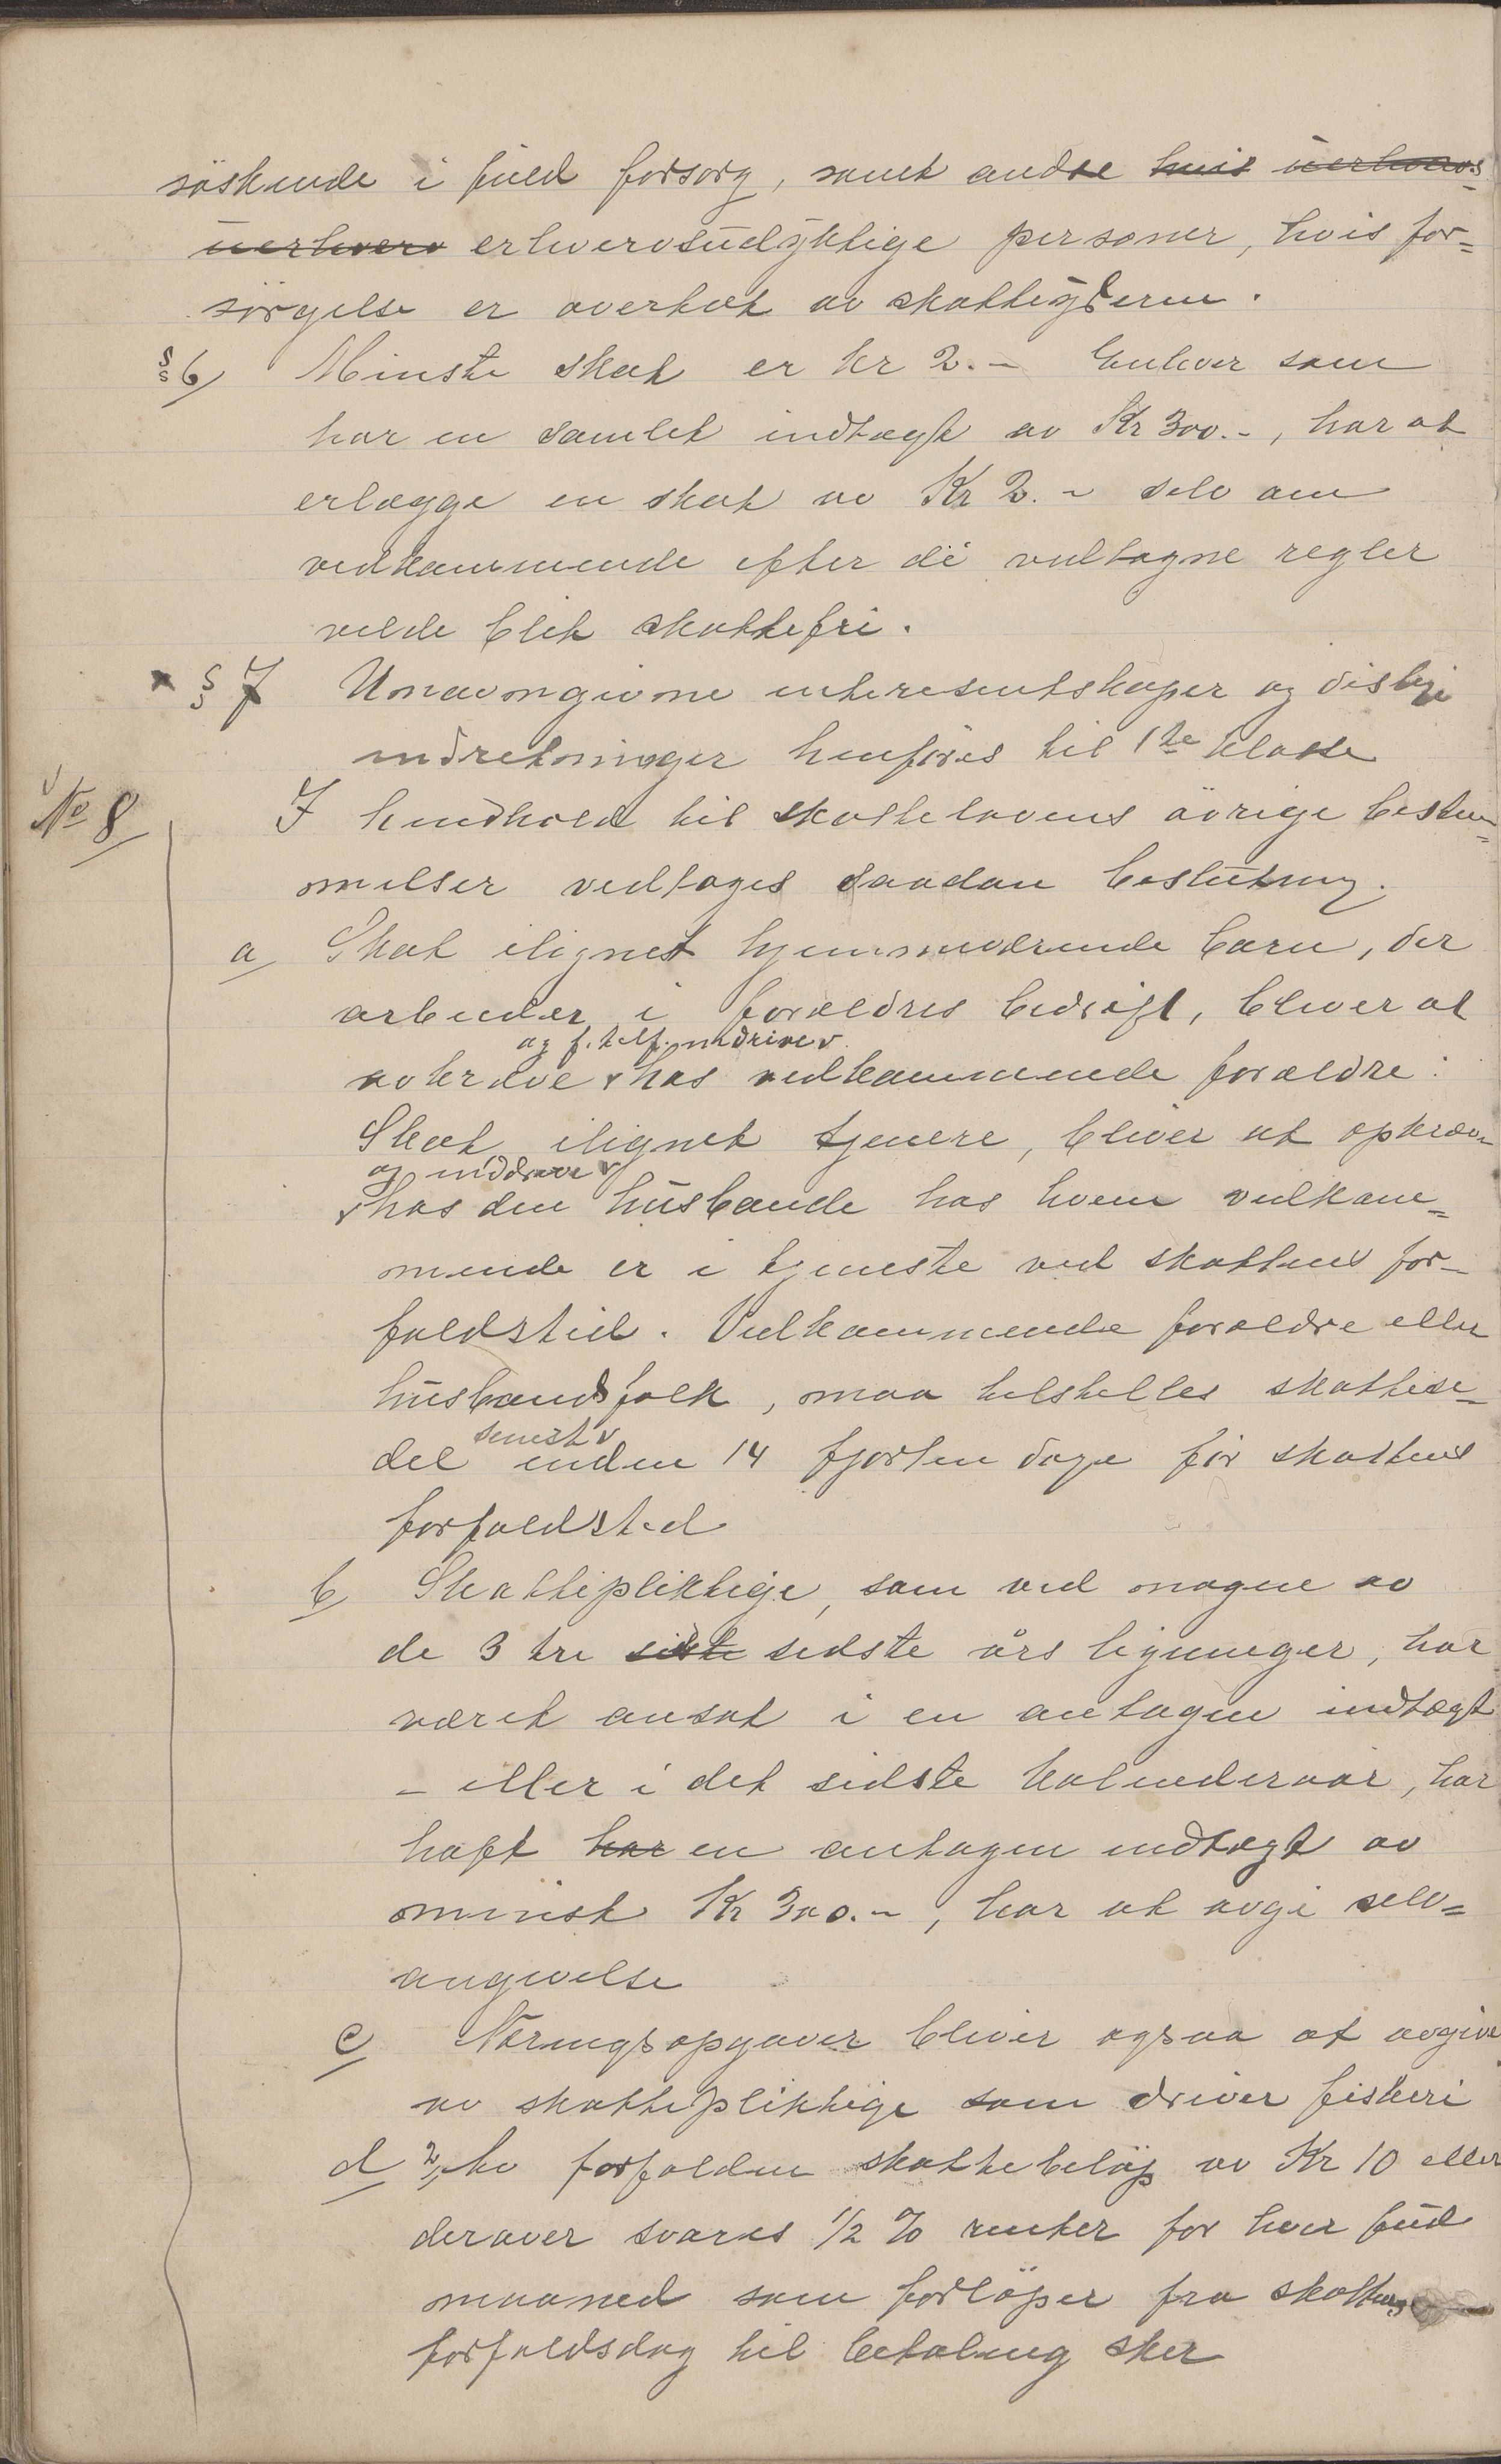 söskende i fuld forsorg, samt andre hvis uerhvervs-
uerhverv erhvervsudyktige personer, hvis for=
sörgelse er overtat av skatteyderen.
§ 6/ Minste skat er kr 2.- Enhver som
har en samlet indtægt av Kr 300.-, har at
erlægge en skat av Kr 2.- selv om
vedkommende efter de vedtagne regler
vilde blit skattefri.
x § 7 Unavngivne interesentskaper og deslige
indretninger henføres til 1ste klasse
No 8 I henhold til skattelovens övrige bestem=
melser vedtages saadan beslutning.
a Skat ilignet hjemmeværende barn, der
arbeider i forældres bedrift, bliver at
og f. tilf. inddrive v
avkræve v hos vedkommende forældre:
Skat ilignet tjenere, bliver at opkræve
og inddrive v
v hos den husbande hos hvem vedkom=
mende er i tjeneste ved skattens for-
faldstid. Vedkommende forældre eller
husbandsfolk, maa tilstilles skattese-
senest v
del inden 14 fjorten dage för skattens
forfaldstid
b Skattepliktige, som ved nogen av
de 3 tre siste sidste års ligninger, har
været ansat i en antagen indtægt
- eller i det sidste kalenderaar, har
haft har en antagen indtægt av
minst Kr 300.-, har at avgi selv=
angivelse
c Næringsopgaver bliver ogsaa at avgive
av skattepliktige som driver fiskeri
d Av forfalden skattebeløp av Kr 10 eller
derover svares 1/2 % renter for hver fuld
maaned som forlöper fra skattens
forfaldsdag til betaling sker